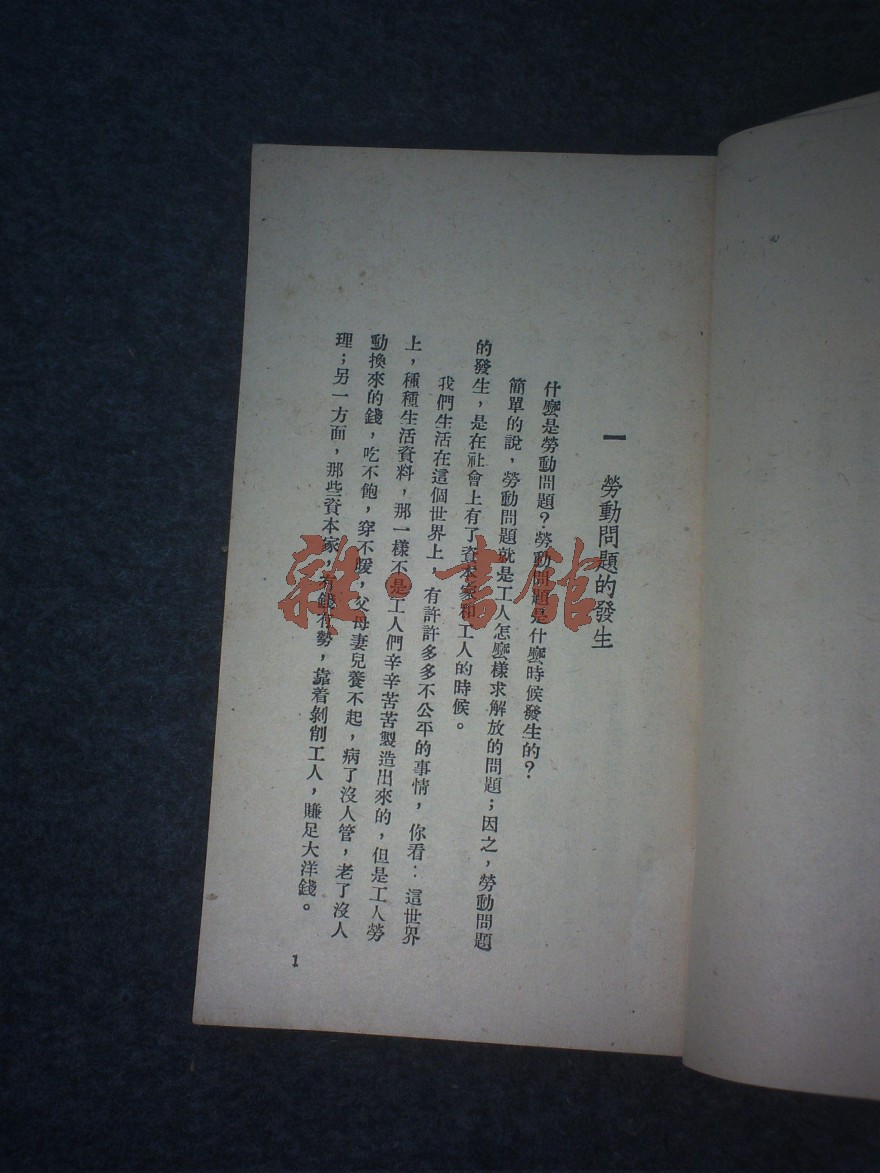 一　勞動問題的發生
什麼是勞動問題？勞動問題是什麼時候發生的？
簡單的說，勞動問題就是工人怎麼樣求解放的問題；因之，勞動問題
的發生，是在社會上有了資本家和工人的時候。
我們生活在這個世界上，有許許多多不公平的事情，你看：這世界
上，種種生活資料，那一樣不是工人們辛辛苦苦製造出來的，但是工人勞
動換來的錢，吃不飽，穿不暖，父母妻兒養不起，病了沒人管，老了沒人
理；另一方面，那些資本家，有錢有勢，靠着剝削工人，賺足大洋錢。
1
雜·書館